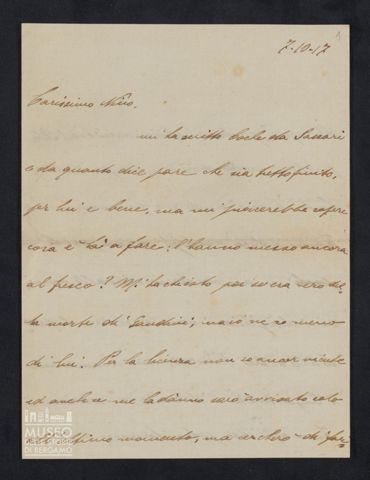 7-10-17
Carissimo Nino.
mi ha scritto Carlo da Sassari
e da quanto dice pare che sia tutto finito,
per lui è bene, ma mi piacerebbe sapere
cosa è là a fare: l'hanno messo ancora
al fresco? M'ha chiesto poi se era vero del-
la morte di Gaudini, ma io ne so meno
di lui. Per la licenza non so ancor niente
ed anche se me la danno sarò avvisato solo
all'ultimo momento, ma cercherò di far-
MUSEO
DELLE STORIE
DI BERGAMO